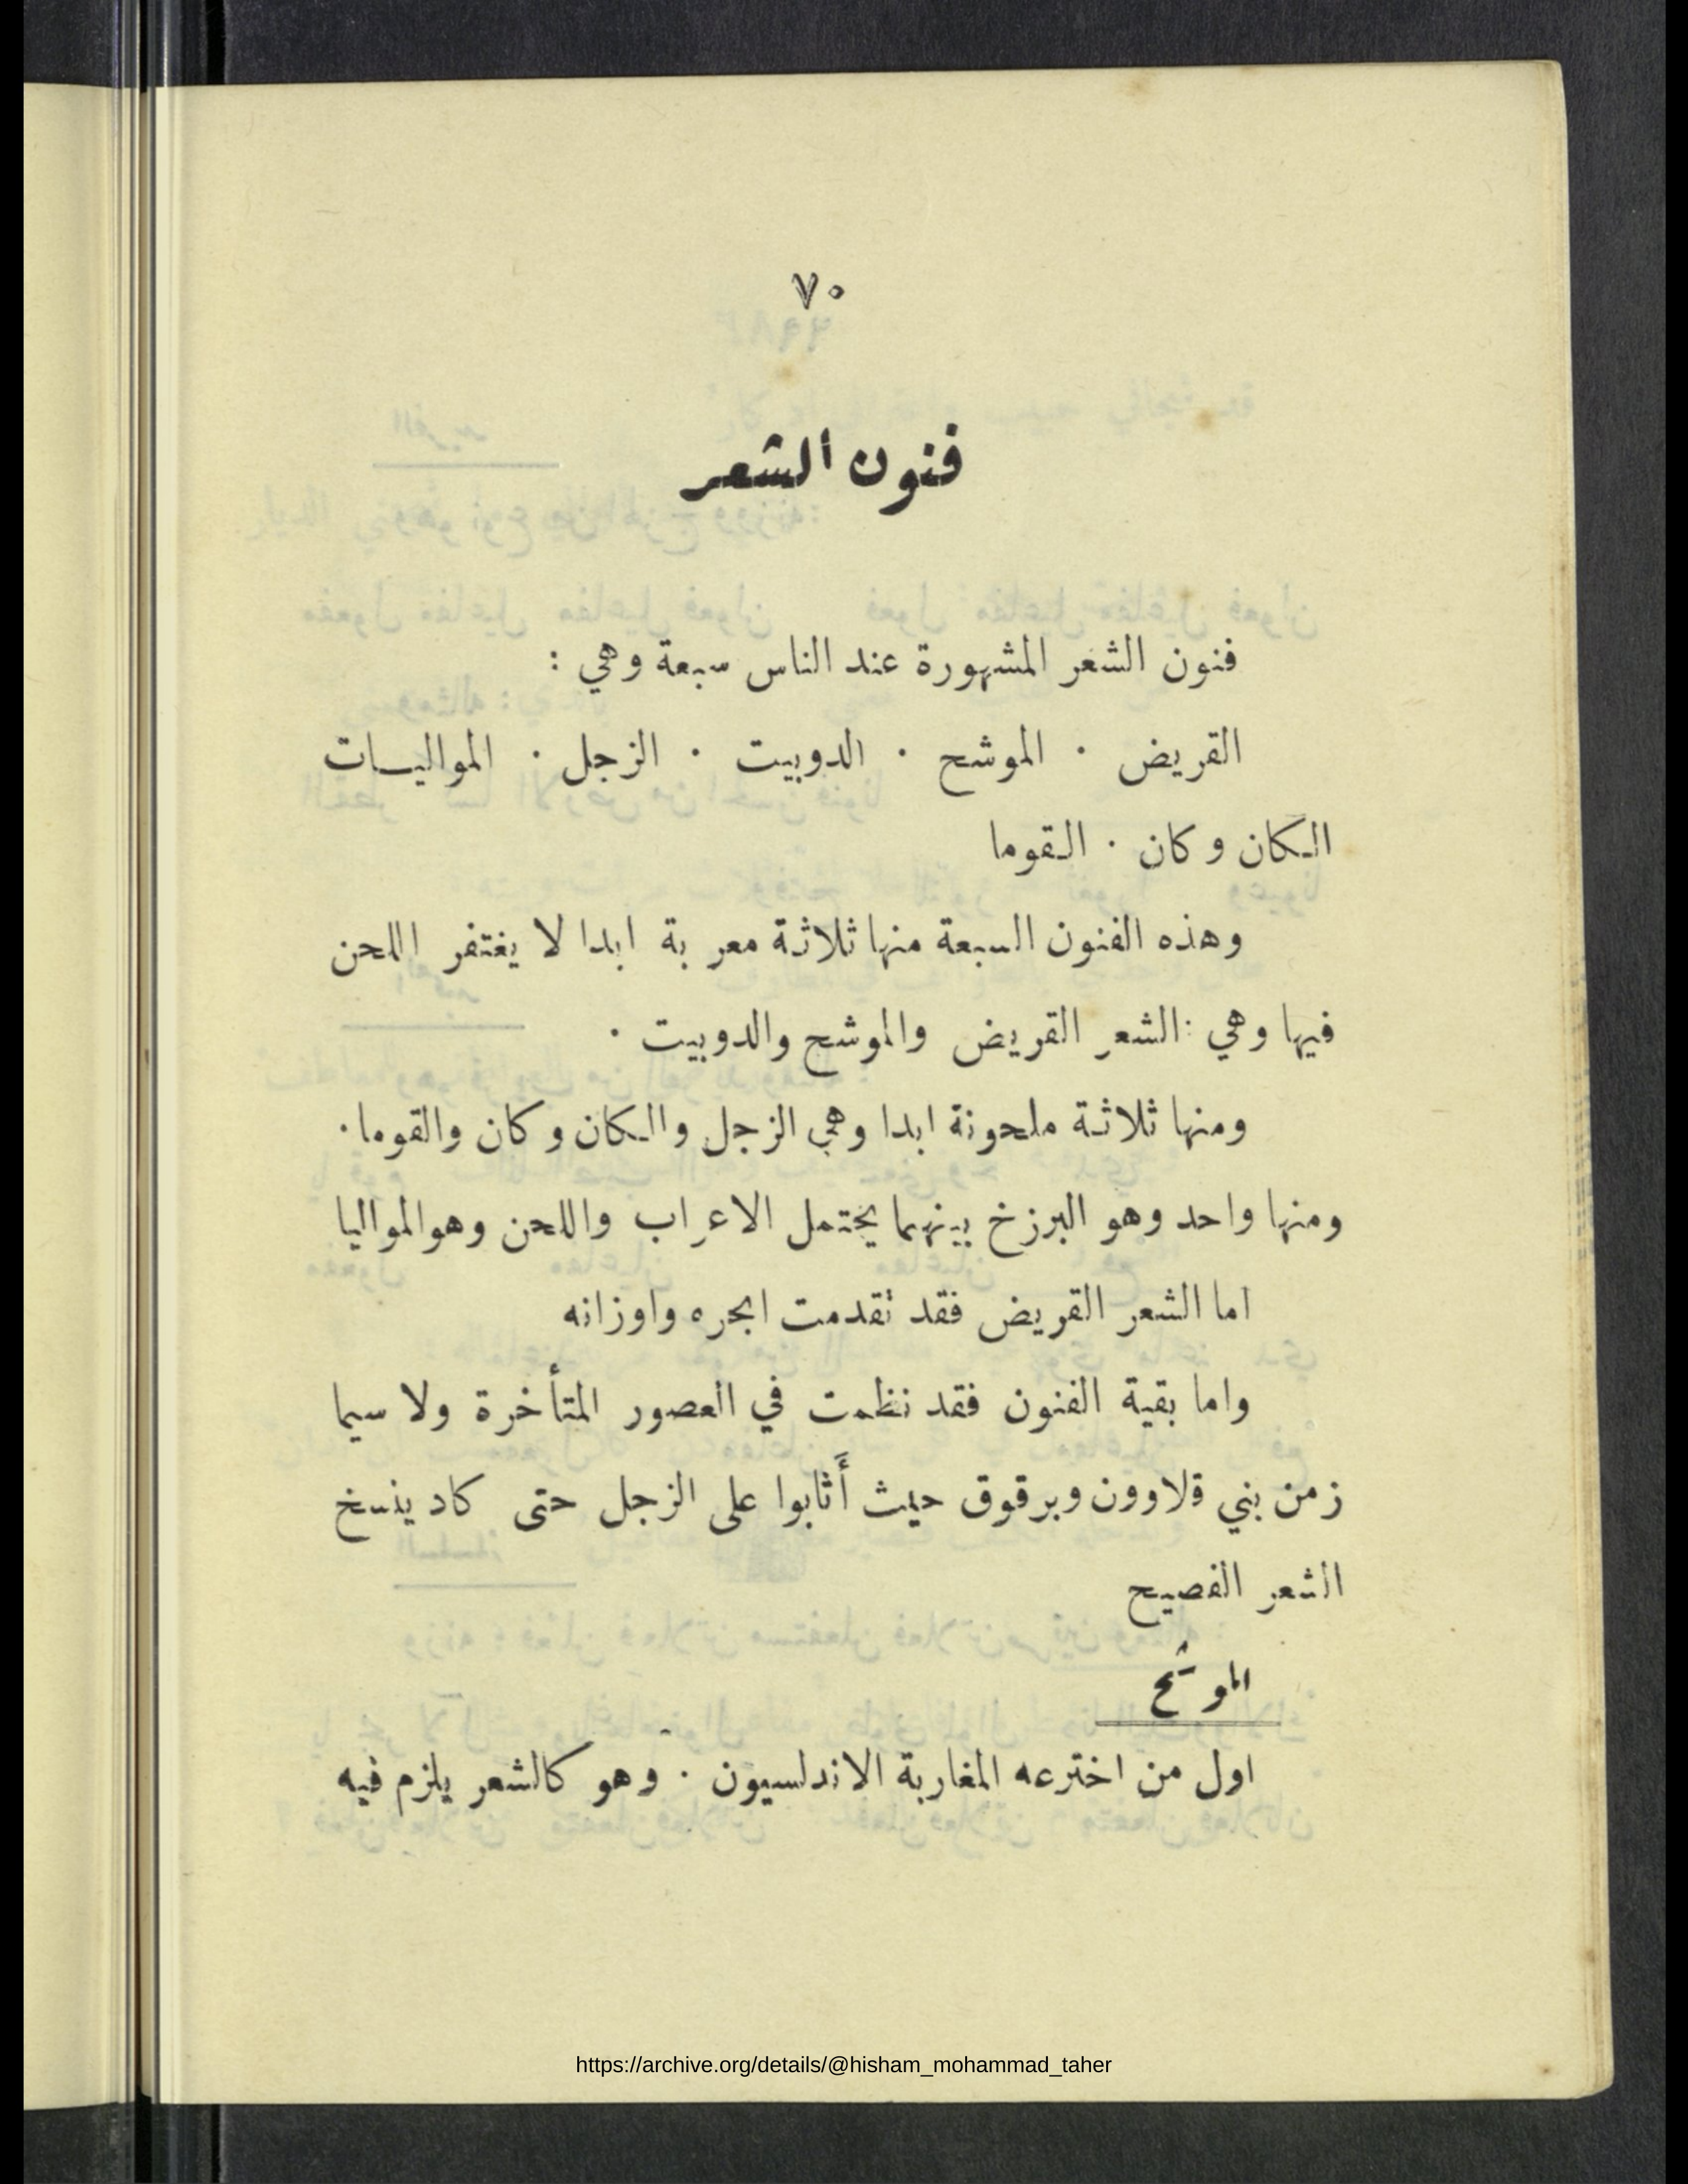 ٧٠
فنون الشعر
فنون الشعر المشهورة عند الناس سبعة وهي :
القريض · الموشح · الدوبيت · الزجل · المواليات
الكان وكان · القوما
وهذه الفنون السبعة منها ثلاثة معربة ابدا لا يغتفر اللحن
فيها وهي : الشعر القريض والموشح والدوبيت ·
ومنها ثلاثة ملحونة ابدا وهي الزجل والكان وكان والقوما ·
ومنها واحد وهو البرزخ بينهما يحتمل الاعراب واللحن وهو المواليا
اما الشعر القريض فقد تقدمت ابحره واوزانه
واما بقية الفنون فقد نظمت في العصور المتأخرة ولا سيما
زمن بني قلاوون وبرقوق حيث أَثابوا على الزجل حتى كاد ينسخ
الشعر الفصيح
الموشَّح
اول من اخترعه المغاربة الاندلسيون · وهو كالشعر يلزم فيه
https://archive.org/details/@hisham_mohammad_taher